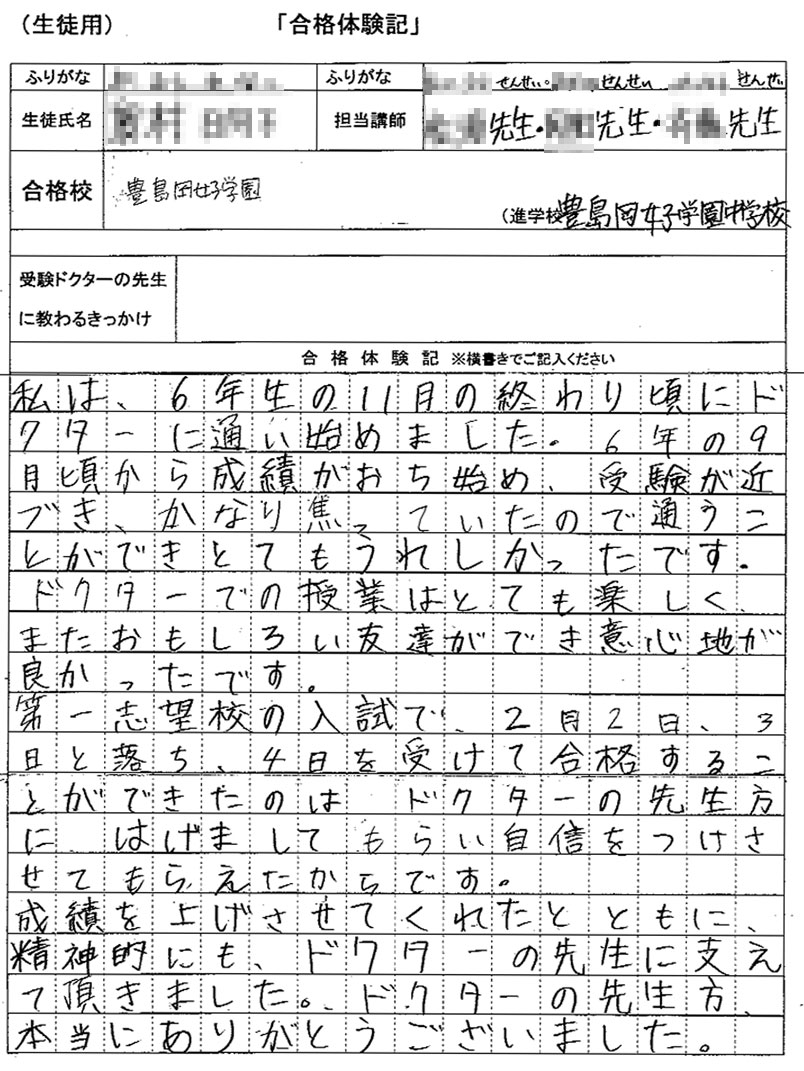 （生徒用）　「合格体験記」
ふりがな　ふりがな　せんせい。　せんせい　せんせい
生徒氏名　村　担当講師　先生・　先生・　先生
合格校　豊島岡女子学園
（進学校 豊島岡女子学園中学校
受験ドクターの先生
に教わるきっかけ
合格体験記 ※横書きでご記入ください
私は、6年生の11月の終わり頃にド
クターに通い始めました。6年の9
月頃から成績がおち始め、受験が近
づき、かなり焦っていたので通うこ
とができとてもうれしかったです。
ドクターでの授業はとても楽しく、
またおもしろい友達ができ意心地が
良かったです。
第一志望校の入試で、2月2日、3
日と落ち、4日を受けて合格するこ
とができたのは　ドクターの先生方
に　はげましてもらい自信をつけさ
せてもらえたからです。
成績を上げさせてくれたとともに、
精神的にも、ドクターの先生に支え
て頂きました。ドクターの先生方、
本当にありがとうございました。